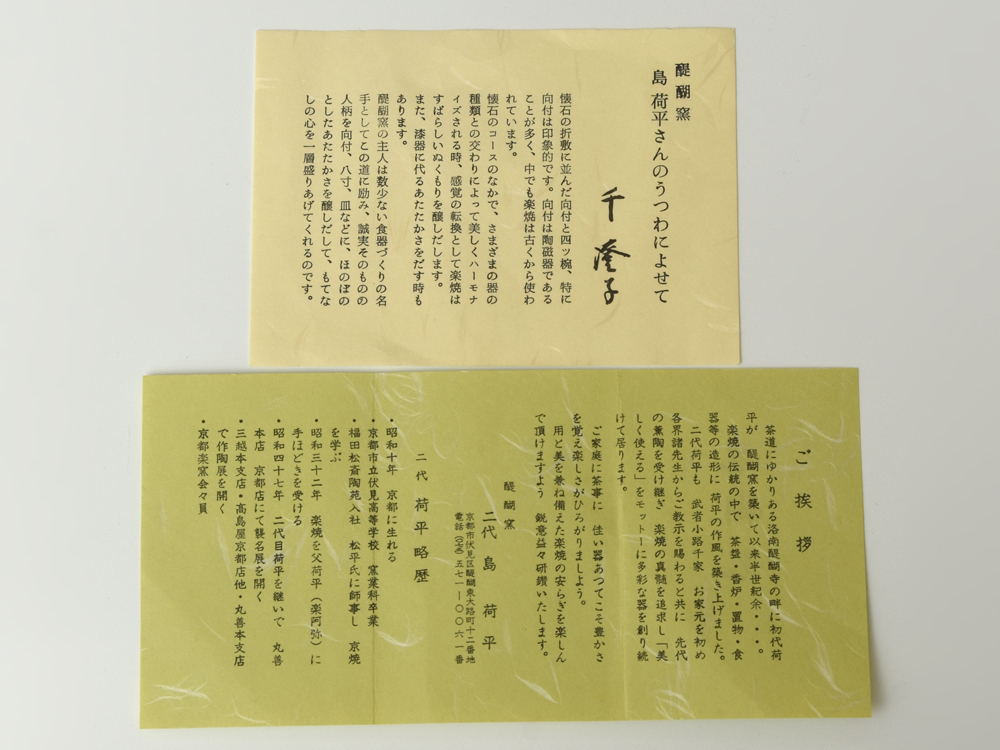 醍醐窯
島 荷平さんのうつわによせて
千 澄子
懐石の折敷に並んだ向付と四ッ椀、特に
向付は印象的です。向付は陶磁器である
ことが多く、中でも楽焼は古くから使わ
れています。
懐石のコースのなかで、さまざまの器の
種類との交わりによって美しくハーモナ
イズされる時、感覚の転換として楽焼は
すばらしいぬくもりを醸しだします。
また、漆器に代るあたたかさをだす時も
あります。
醍醐窯の主人は数少ない食器づくりの名
手としてこの道に励み、誠実そのものの
人柄を向付、八寸、皿などに、ほのぼの
としたあたたかさを醸しだして、もてな
しの心を一層盛りあげてくれるのです。
ご挨拶
茶道にゆかりある洛南醍醐寺の畔に初代荷
平が 醍醐窯を築いて以来半世紀余・・・・。
楽焼の伝統の中で 茶盌・香炉・置物・食
器等の造形に 荷平の作風を築き上げました。
二代荷平も 武者小路千家 お家元を初め
各界諸先生からご教示を賜わると共に 先代
の薫陶を受け継ぎ 楽焼の真髄を追求し「美
しく使える」をモットーに多彩な器を創り続
けて居ります。
ご家庭に茶事に 佳い器あってこそ豊かさ
を覚え楽しさがひろがりましよう。
用と美を兼ね備えた楽焼の安らぎを楽しん
で頂けますよう 鋭意益々研鑽いたします。
醍醐窯
二代 島 荷平
京都市伏見区醍醐東大路町十二番地
電話(〇七五)五七一―〇〇六一番
二代 荷平略歴
・昭和十年 京都に生れる
・京都市立伏見高等学校 窯業科卒業
・福田松斎陶苑入社 松平氏に師事し 京焼
を学ぶ
・昭和三十二年 楽焼を父荷平(楽阿弥)に
手ほどきを受ける
・昭和四十七年 二代目荷平を継いで 丸善
本店 京都店にて襲名展を開く
・三越本支店・高島屋京都店他・丸善本支店
で作陶展を開く
・京都楽窯会々員